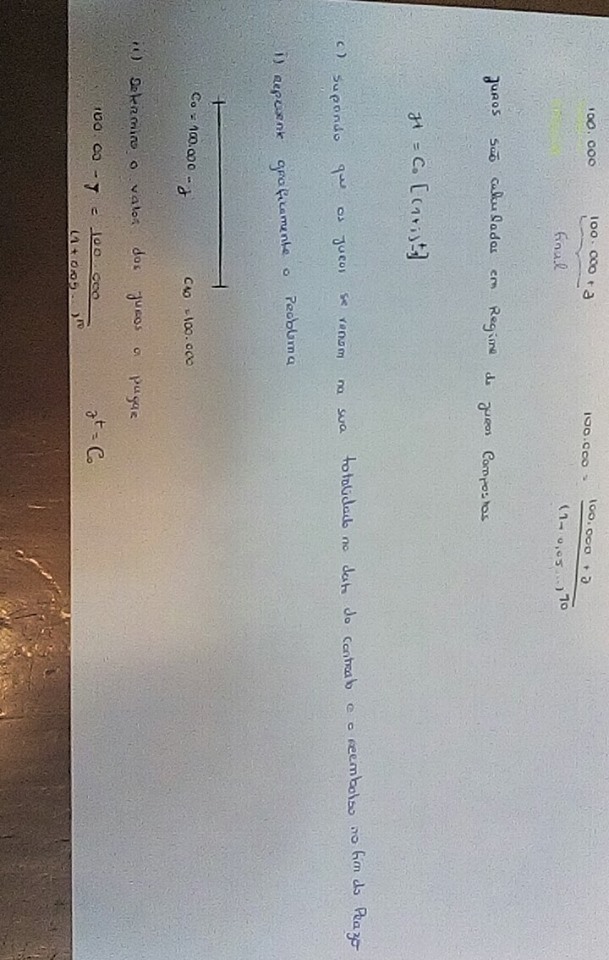 100.000 100.000 + J 100.000 = 100.000 + J
final (1+ 0,05...)^10
Juros são calculados em Regime de juros Compostos
Jt = C₀ [(1+i)^t-1]
c) Supondo que os juros se vencem na sua totalidade na data do contrato e o reembolso no fim do Prazo
i) Represente graficamente o Problema
C₀ = 100.000 - J C10 = 100.000
ii) Determine o valor dos juros a pagar
100.00 - J = 100.000 J^t = C₀
(1 + 0,05...)^10